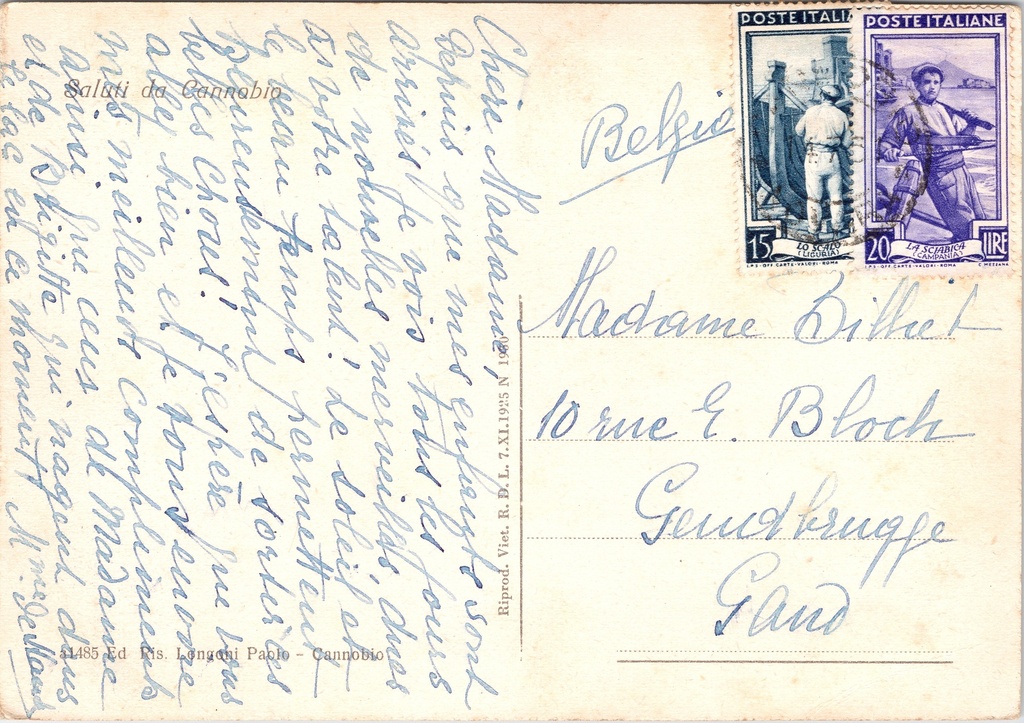 Saluti da Cannobio
Chère Madame,
Depuis que mes enfants sont
arrivés je vois tous les jours
de nouvelles merveilles dues
à votre talent! Le soleil et
le beau temps permettent
heureusement de sortir ces
belles choses! J'espère que vous
allez bien et je vous envoie
mes meilleurs compliments
ainsi que ceux de Madame
et de Brigitte qui nagent dans
le lac en ce moment! Mme De
31485 Ed Ris. Longoni Paolo - Cannobio
Riprod. Viet. R. D. L. 7.XI.1925 N
POSTE ITALIA
15
LO SCALO
(LIGURIA)
I.P.S-OFF. CARTE-VALORI-ROMA
POSTE ITALIANE
20 LIRE
LA SCIABICA
(CAMPANIA)
I.P.S-OFF. CARTE-VALORI-ROMA C. MEZZANA
Belgio
Madame Dilliet
10 rue E. Bloch
Gendbrugge
Gand